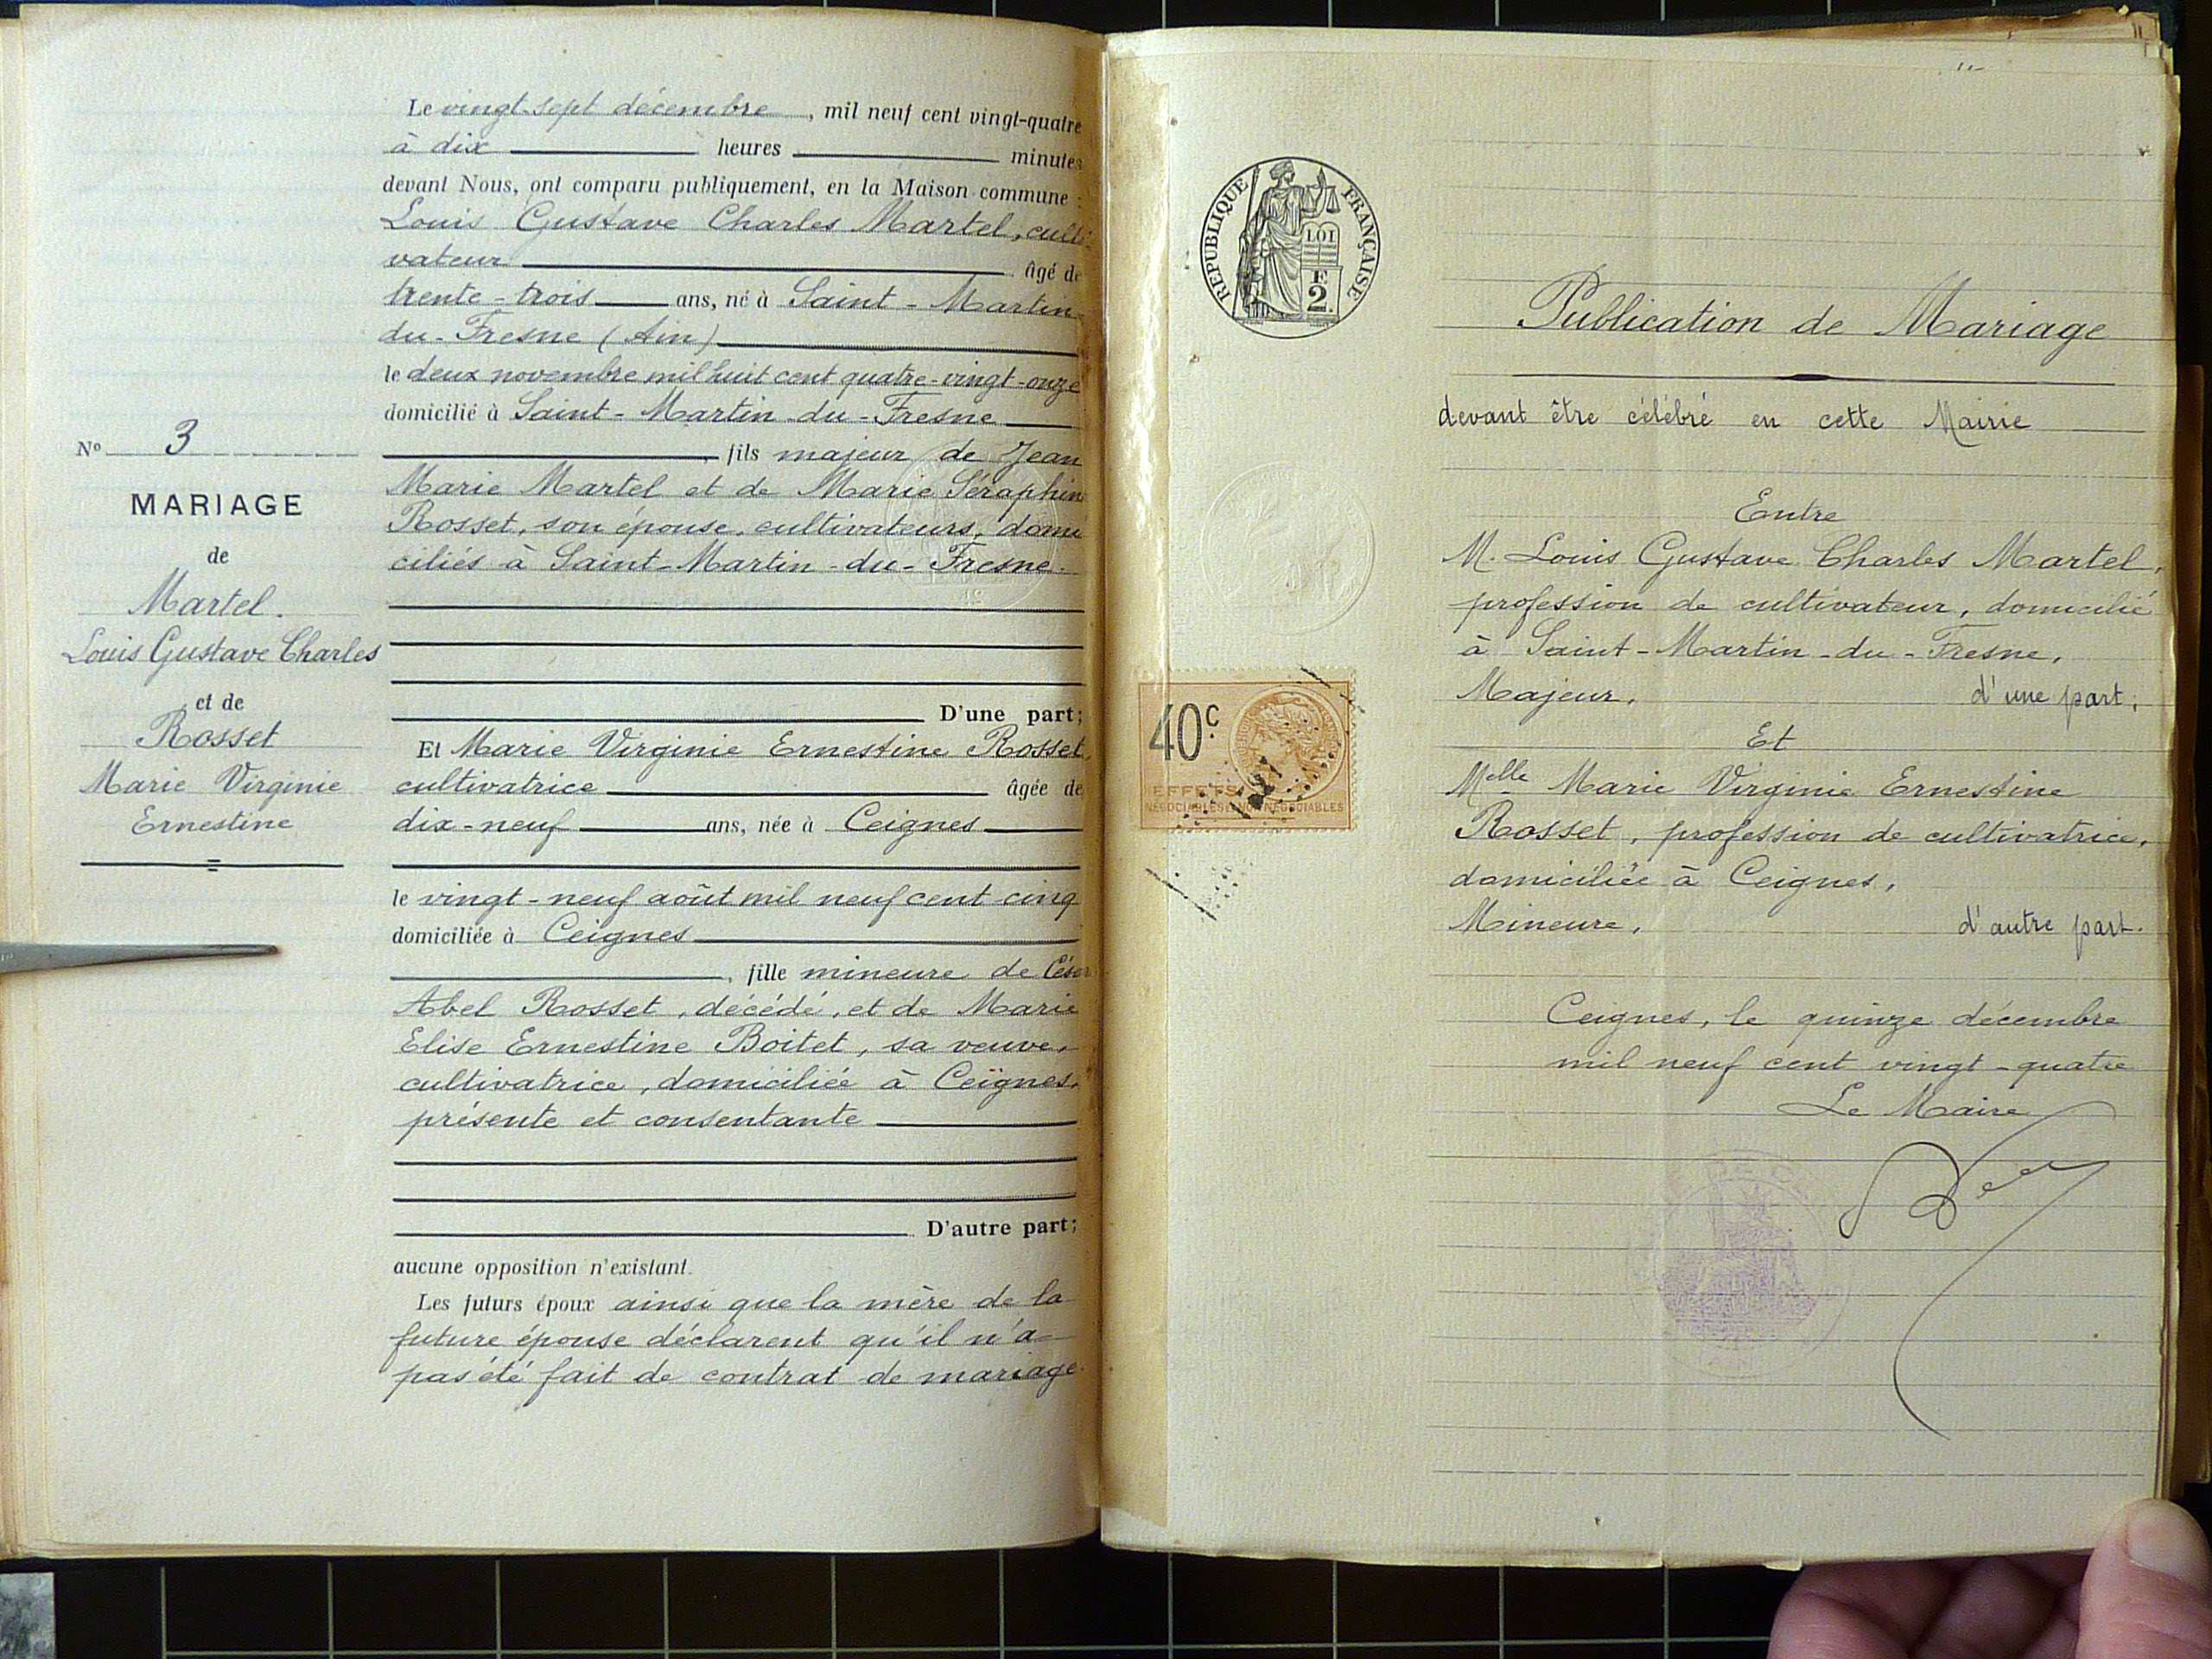 Le vingt-sept décembre, mil neuf cent vingt-quatre
à dix heures minutes
devant Nous, ont comparu publiquement, en la Maison commune :
Louis Gustave Charles Martel, culti
vateur âgé de
trente-trois ans, né à Saint-Martin-
du-Fresne (Ain)
le deux novembre mil huit cent quatre-vingt-onze
domicilié à Saint-Martin-du-Fresne
, fils majeur de Jean
Marie Martel et de Marie Séraphin
Rosset, son épouse, cultivateurs, domi
ciliés à Saint-Martin-du-Fresne.
D'une part;
Et Marie Virginie Ernestine Rosset,
cultivatrice âgée de
dix-neuf ans, née à Ceignes
le vingt-neuf août mil neuf cent cinq
domiciliée à Ceignes
, fille mineure de César
Abel Rosset, décédé, et de Marie
Elise Ernestine Boitet, sa veuve,
cultivatrice, domiciliée à Ceignes,
présente et consentante
D'autre part;
aucune opposition n'existant.
Les futurs époux ainsi que la mère de la
future épouse déclarent qu'il n'a
pas été fait de contrat de mariage.
No 3
MARIAGE
de
Martel.
Louis Gustave Charles
et de
Rosset
Marie Virginie
Ernestine
REPUBLIQUE FRANÇAISE
LOI
F
2.
40c.
EFFETS
NÉGOCIABLES & NON NÉGOCIABLES
Publication de Mariage
devant être célébré en cette Mairie
Entre
M. Louis Gustave Charles Martel,
profession de cultivateur, domicilié
à Saint-Martin-du-Fresne,
Majeur, d'une part;
Et
Melle Marie Virginie Ernestine
Rosset, profession de cultivatrice,
domiciliée à Ceignes,
Mineure, d'autre part.
Ceignes, le quinze décembre
mil neuf cent vingt-quatre
Le Maire